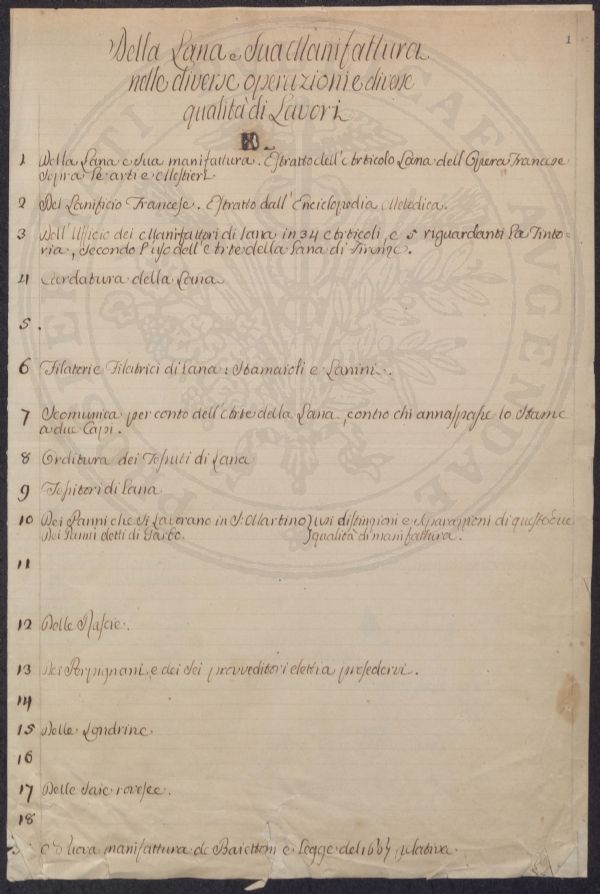 1
Della Lana e Sua Manifattura
nelle diverse operazioni e diverse
qualità di Lavori
1 Della Lana e Sua manifattura. Estratto dell'Articolo Lana dell'Opera Francese
sopra le arti e Mestieri
2 Del Lanificio Francese. Estratto dall'Enciclopedia Metodica.
3 Dell'Uffizio dei Manifattori di lana in 34 Articoli, e 5 riguardanti la Tinto-
ria, secondo l'uso dell'Arte della lana di Firenze.
4 Cardatura della Lana
5 .
6 Filatori e Filatrici di lana: Stamaioli e Lanini.
7 Scomunica per conto dell'Arte della Lana, contro chi annaspasse lo Stame
a due Capi.
8 Orditura dei Tessuti di Lana
9 Tessitori di Lana
10 Dei Panni che si Lavorano in S. Martino usi distinzioni e separazioni di queste due
Dei Panni detti di Garbo. qualità di manifattura.
11
12 Delle Rascie.
13 Dei Perpignani, e dei sei provveditori eletti a presedervi.
14
15 Delle Londrine
16
17 Delle Saie rovesce.
18
Nuova manifattura de Baiettoni e Legge del relativa.
PERITI AUGENDAE